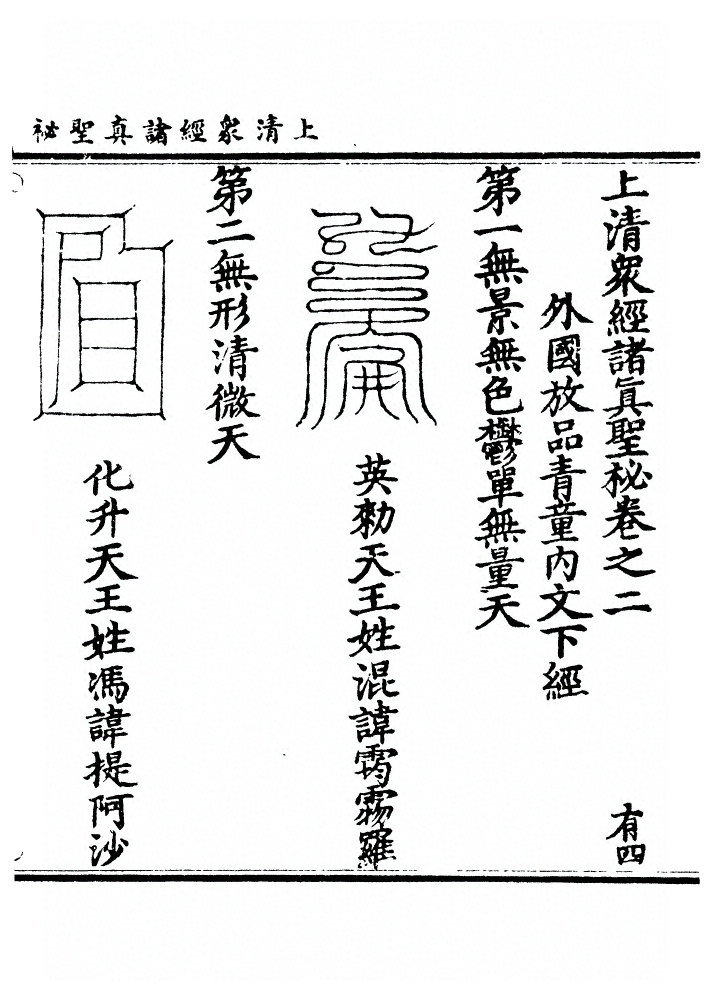 上清衆經諸真聖祕
上清衆經諸眞聖秘卷之二 有四
外國放品青童內文下經
第一無景無色鬱單無量天
英勑天王姓混諱霐霧羅
第二無形清微天
化升天王姓馮諱提阿沙